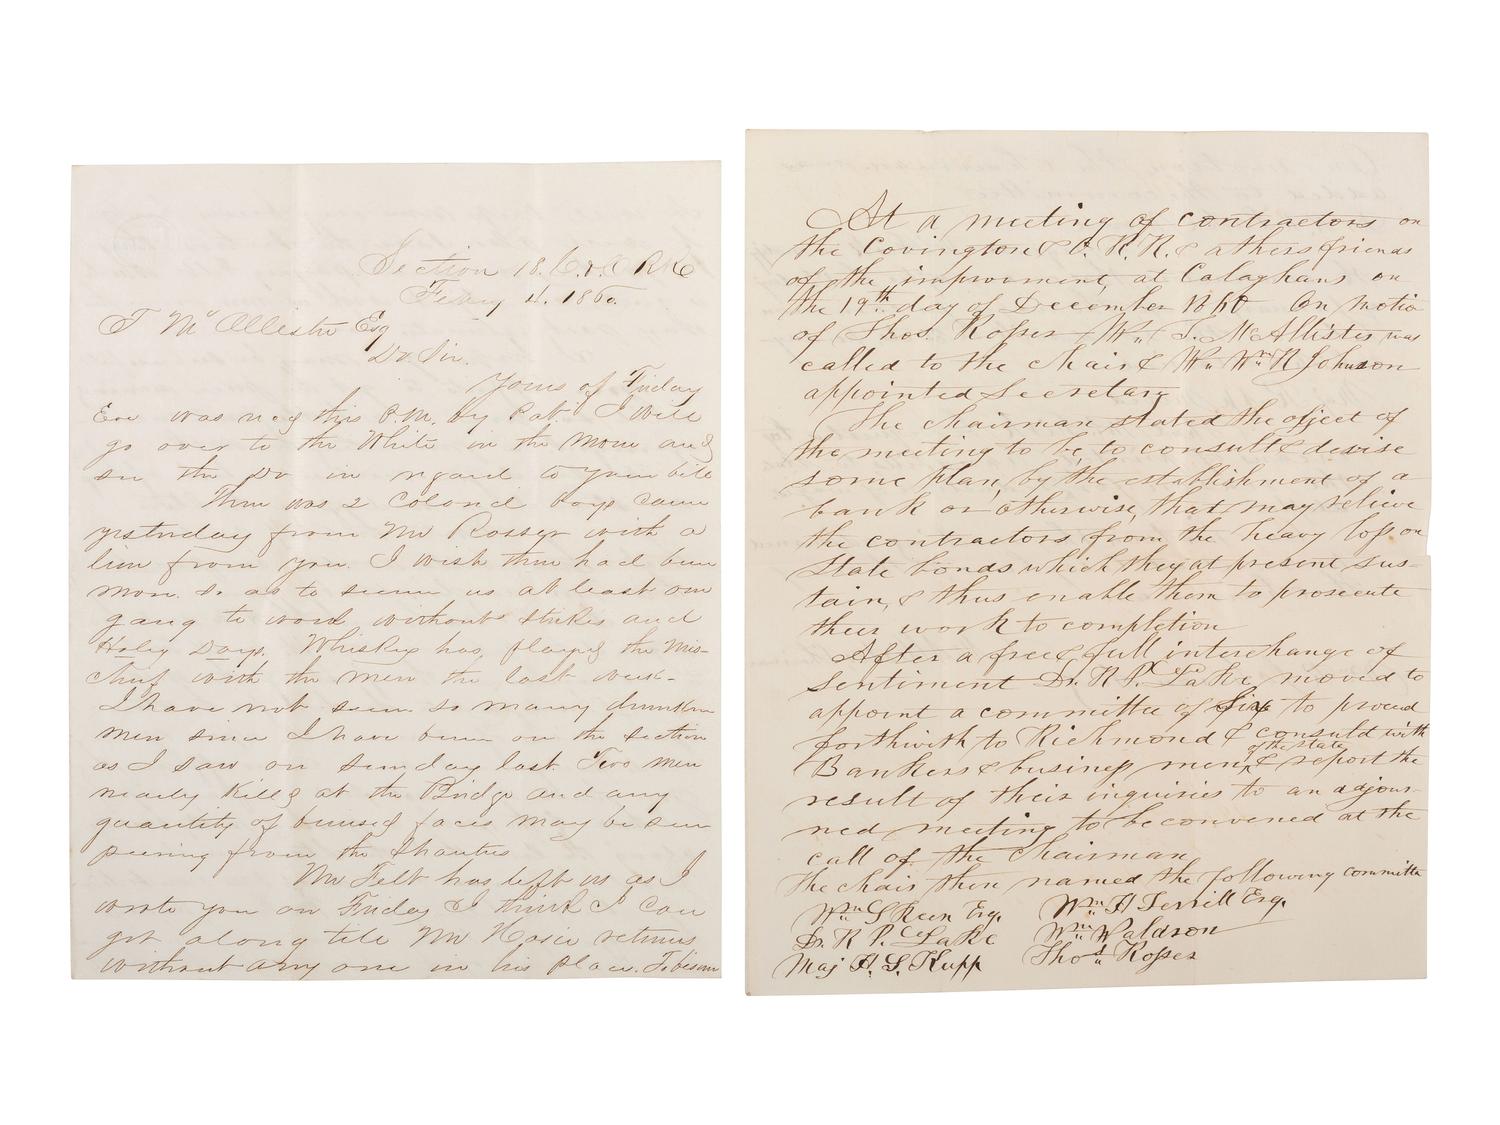 Section 18. C. & O RR
Feby 4. 1860.
T Mc Allister Esq
Dr. Sir.
Yours of Friday
Eve was recd this P.M. by Pat. I will
go over to the White in the Morn and
see the Dr in regard to your bill
There was 2 Colored boys came
yesterday from Mr Rosser with a
line from you. I wish there had been
more. so as to secure us at least one
gang to work without strikes and
Holiy Days. Whiskey has played the Mis-
chief with the men the last week-
I have not seen so many drunken
men since I have been on the section
as I saw on sunday last. Two men
nearly Killd at the Bridge and any
quantity of bruised faces may be seen
peering from the Shanties
Mr Felt has left us as I
wrote you on Friday I think I can
get along till Mr returns
without any one in his place.
At a meeting of contractors on
the Covington & O. R. R. & others friends
of the improvment, at Calaghans on
the 19th day of December 1860 On motio
of Thos. Rosser Wm T. McAllister was
called to the chair & Wm N Johnson
appointed Secretary
The chairman stated the object of
the meeting to be, to consult & devise
some plan, by the establishment of a
bank or otherwise, that may relieve
the contractors from the heavy loss on
State bonds which they at present sus-
tain, & thus enable them to prosecute
their work to completion
After a free & full interchange of
sentiment Dr. R P. Lake, moved to
appoint a committee of Six to proceed
forthwith to Richmond & consult with
Bankers & business men of the state & report the
result of their inquiries to an adjour-
ned meeting to be convened at the
call of the Chairman
The chair then named the following committe
Wm Skeen Esq. Wm H Terrill Esq.
Dr. R P. Lake Wm Waldron
Maj H. S. Thos Rosser